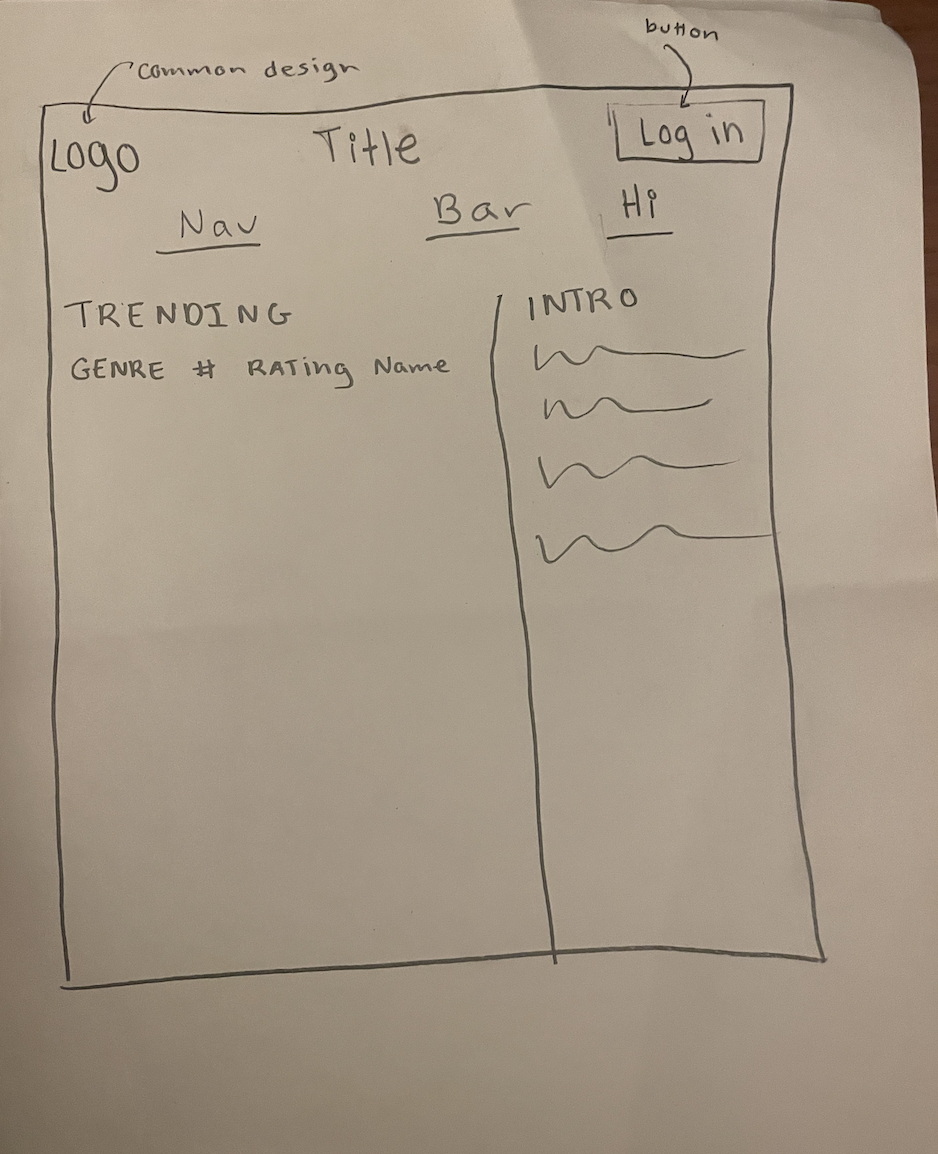 button
common design
Logo Title Log in
Nav Bar Hi
TRENDING
GENRE # RATing Name
INTRO